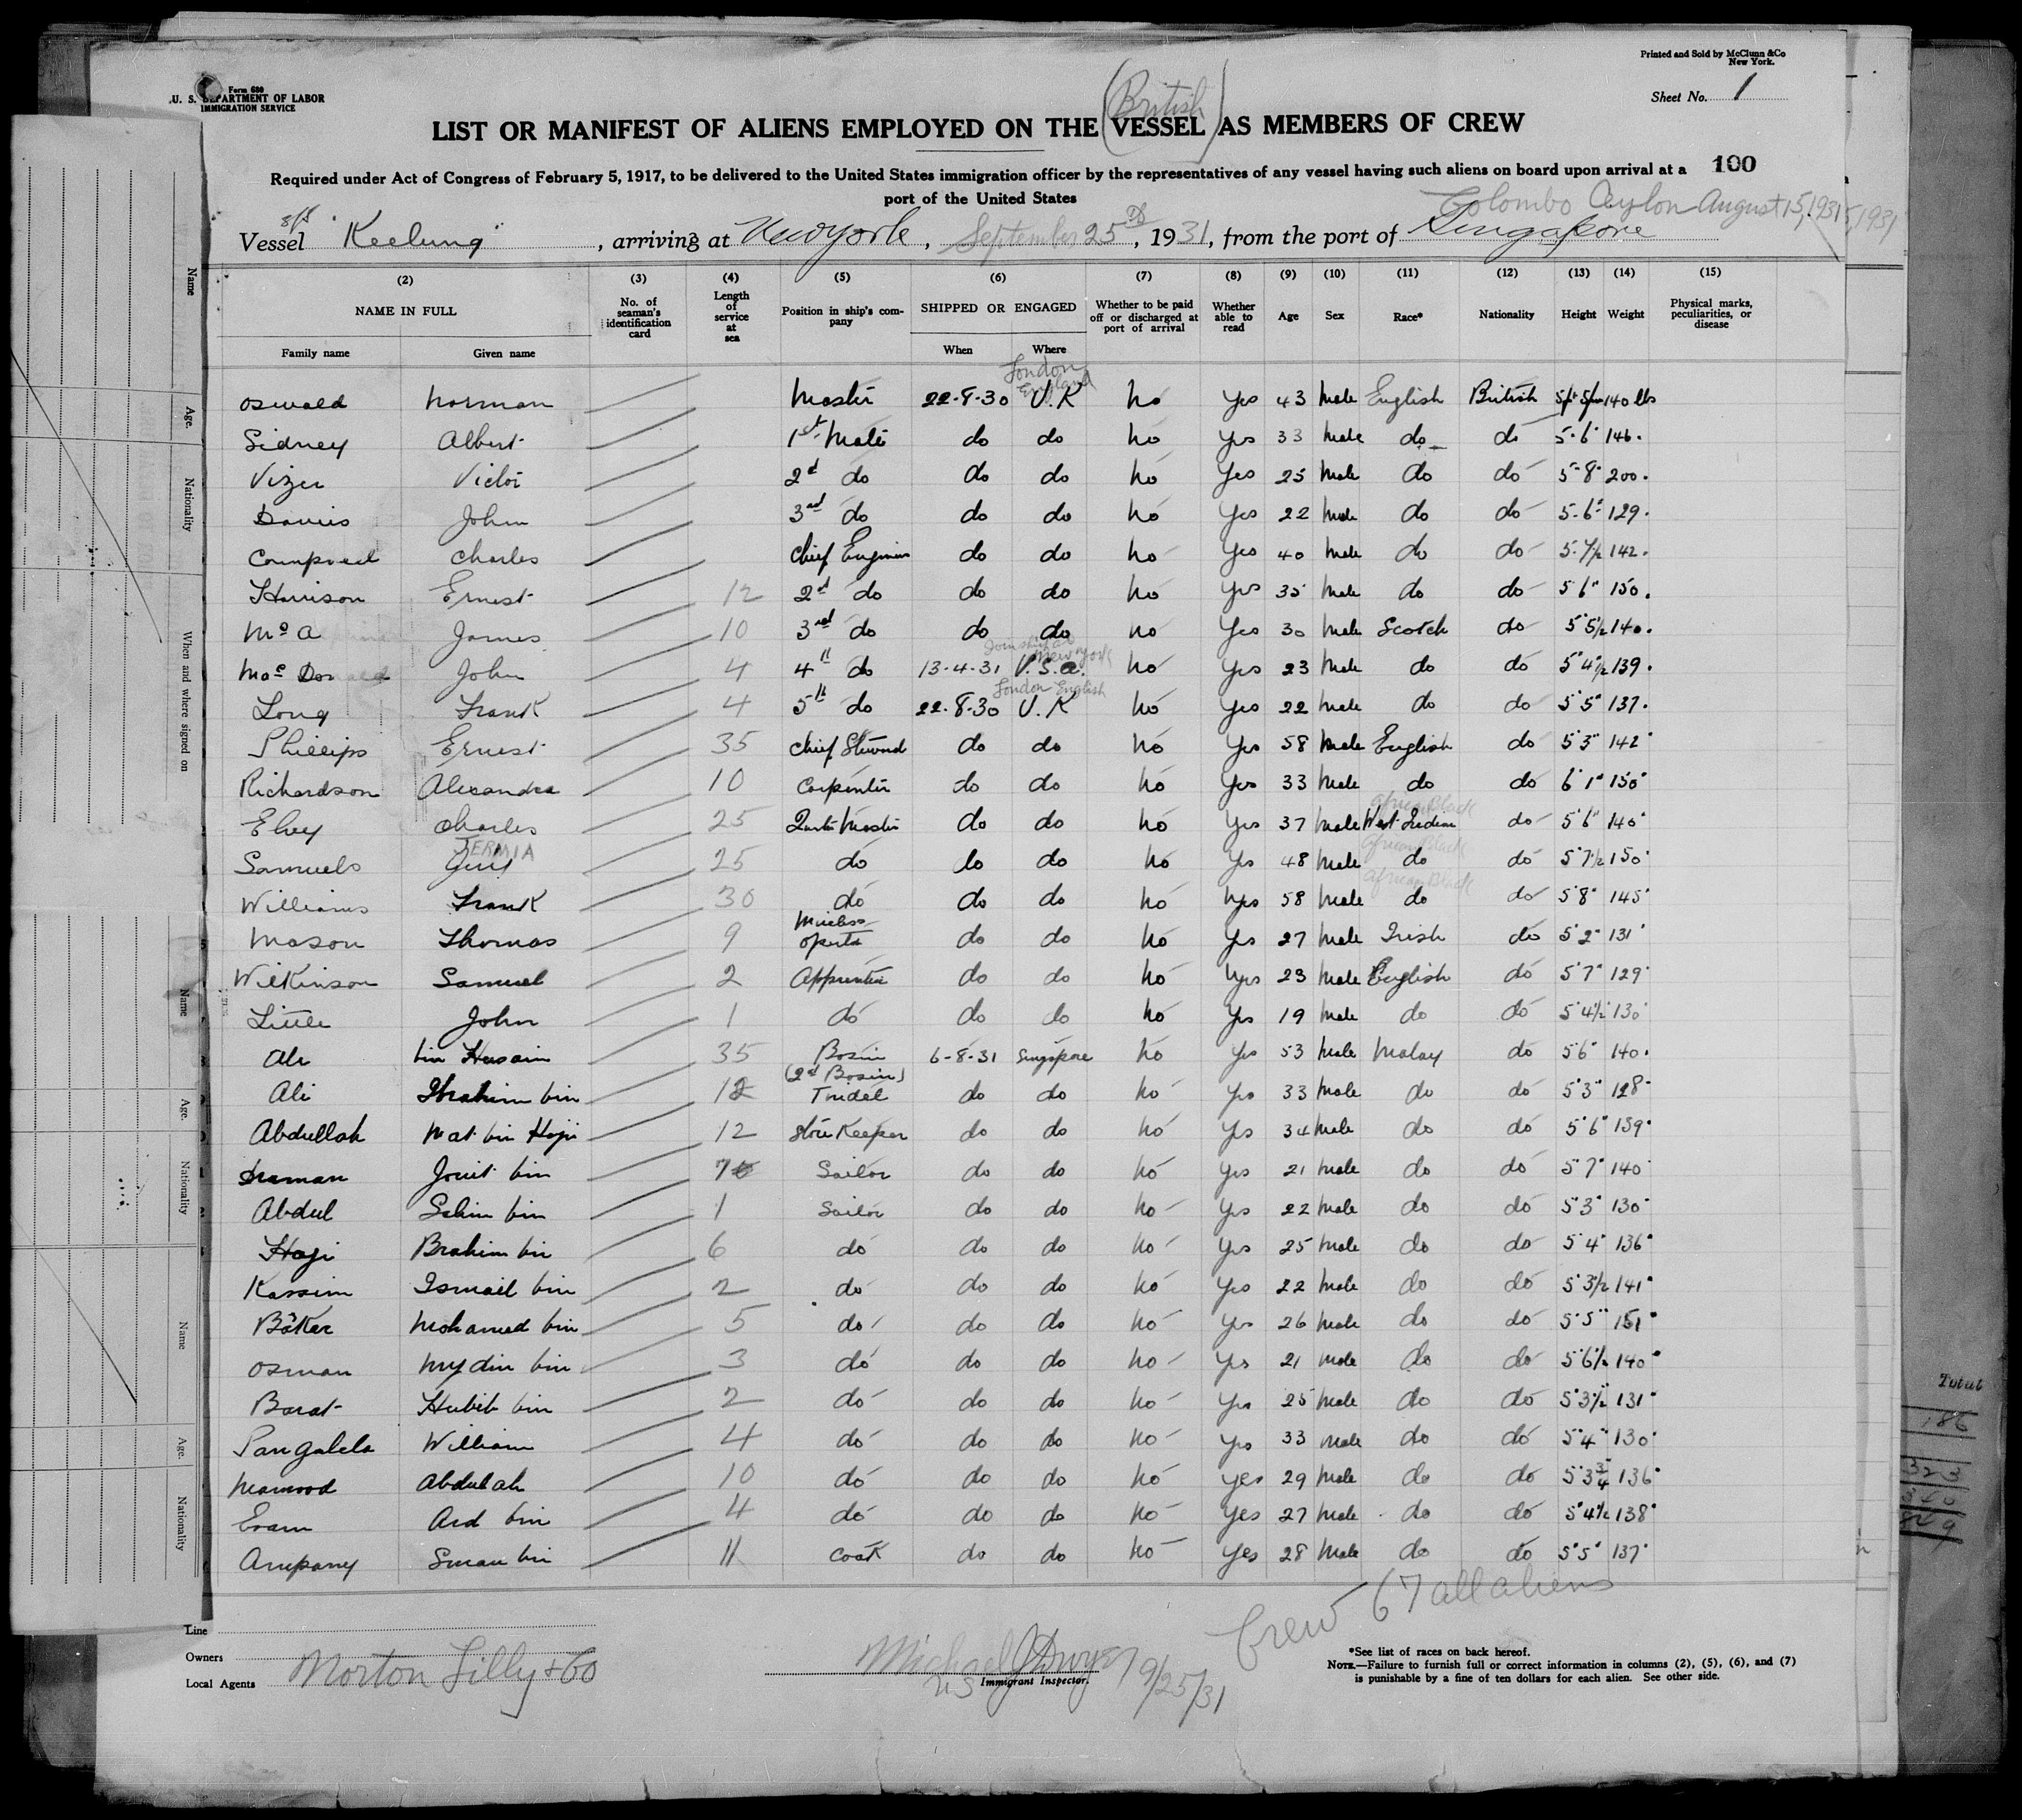 Printed and Sold by McClunn & Co
New York.
Form 680
U. S. DEPARTMENT OF LABOR
IMMIGRATION SERVICE
Sheet No. 1
(British)
LIST OR MANIFEST OF ALIENS EMPLOYED ON THE VESSEL AS MEMBERS OF CREW
100
Required under Act of Congress of February 5, 1917, to be delivered to the United States immigration officer by the representatives of any vessel having such aliens on board upon arrival at a
port of the United States
Colombo Ceylon August 15, 1931
Vessel Keelung, arriving at New York, September 25th, 1931, from the port of Singapore
(2) (3) (4) (5) (6) (7) (8) (9) (10) (11) (12) (13) (14) (15)
NAME IN FULL No. of seaman's identification card Length of service at sea Position in ship's company SHIPPED OR ENGAGED Whether to be paid off or discharged at port of arrival Whether able to read Age Sex Race* Nationality Height Weight Physical marks, peculiarities, or disease
Family name Given name When Where
London England
Oswald Norman Master 22-8-30 U.K No Yes 43 Male English British 140 lbs
Sidney Albert 1st Mate do do No Yes 33 Male do do 5-6" 146.
Vizer Victor 2d do do do No Yes 25 Male do do 5-8" 200.
Davies John 3rd do do do No Yes 22 Male do do 5-6" 129.
Charles Chief Engineer do do No Yes 40 Male do do 142.
Harrison Ernest 12 2d do do do No Yes 35 Male do do 5 6" 150.
James 10 3rd do do do No Yes 30 Male Scotch do 5 5½ 140.
New York
John 4 4th do 13-4-31 U.S.A. No Yes 23 Male do do 5"4"½ 139.
London English
Long Frank 4 5th do 22-8-30 U.K No Yes 22 Male do do 5"5" 137.
Phillips Ernest 35 Chief Steward do do No Yes 58 Male English do 5"3" 142
Richardson Alexandra 10 Carpenter do do No Yes 33 Male do do 6"1" 150
African Black
Elvey Charles 25 Quarter Master do do No Yes 37 Male West Indian do 5"6" 140
JERMIA African Black
Samuels 25 do do do No Yes 48 Male do do 5"7½ 150
African Black
Williams Frank 30 do do do No Yes 58 Male do do 5"8" 145
Mason Thomas 9 Wireless Operator do do No Yes 27 Male Irish do 5"2" 131
Wilkinson Samuel 2 Apprentice do do No Yes 23 Male English do 5"7" 129
Little John 1 do do do No Yes 19 Male do do 5"4½ 130
Ali bin Husain 35 Bosun 6-8-31 Singapore No Yes 53 Male Malay do 5"6" 140.
(2d Bosun)
Ali Ibrahim bin 12 Tindel do do No Yes 33 Male do do 5"3" 128
Abdullah Mat bin Haji 12 Store Keeper do do No Yes 34 Male do do 5"6" 139
Draman Jouit bin 7 Sailor do do No Yes 21 Male do do 5"7" 140
Abdul Selim bin 1 Sailor do do No Yes 22 Male do do 5"3" 130
Haji Brahim bin 6 do do do No Yes 25 Male do do 5"4" 136
Kassim Ismail bin 2 do do do No Yes 22 Male do do 5"3½ 141
Baker Mohamed bin 5 do do do No Yes 26 Male do do 5"5" 151
Osman Mydin bin 3 do do do No Yes 21 Male do do 5"6½ 140
Barat Hubib bin 2 do do do No Yes 25 Male do do 5"3½ 131
Pangalila William 4 do do do No Yes 33 Male do do 5"4" 130
Mamood Abdulah 10 do do do No Yes 29 Male do do 5"3¾ 136
Esam Ard bin 4 do do do No Yes 27 Male do do 5"4½ 138
Ampany Sman bin 11 Cook do do No Yes 28 Male do do 5"5" 137
Crew 67 all aliens
Line
Owners
Local Agents Morton Lilly & Co
Michael J Dwyer 9/25/31
US Immigrant Inspector.
*See list of races on back hereof.
NOTE.—Failure to furnish full or correct information in columns (2), (5), (6), and (7)
is punishable by a fine of ten dollars for each alien. See other side.
Name
Age.
Nationality
When and where signed on
Name
Age.
Nationality
Name
Age.
Nationality
Total
186
323